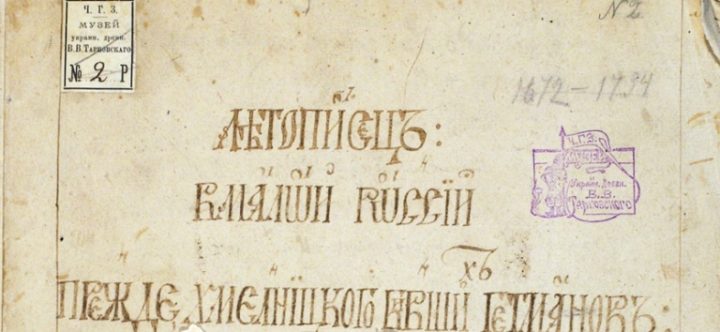 Ч. Г. З.
МУЗЕЙ
украин. древн.
В. В. Тарновскаго
№ 2 Р
N 2
1672 – 1734
ЛѢТОПИСЕЦЪ:
В МАЛОЙ РОССІЙ
ПРЕЖДЕ ХМЕЛНИЦКОГО БЫВШИХЪ ГЕТМАНОВЪ:
Ч. Г. З.
Музей
Украин. Древн.
В. В.
Тарновскаго